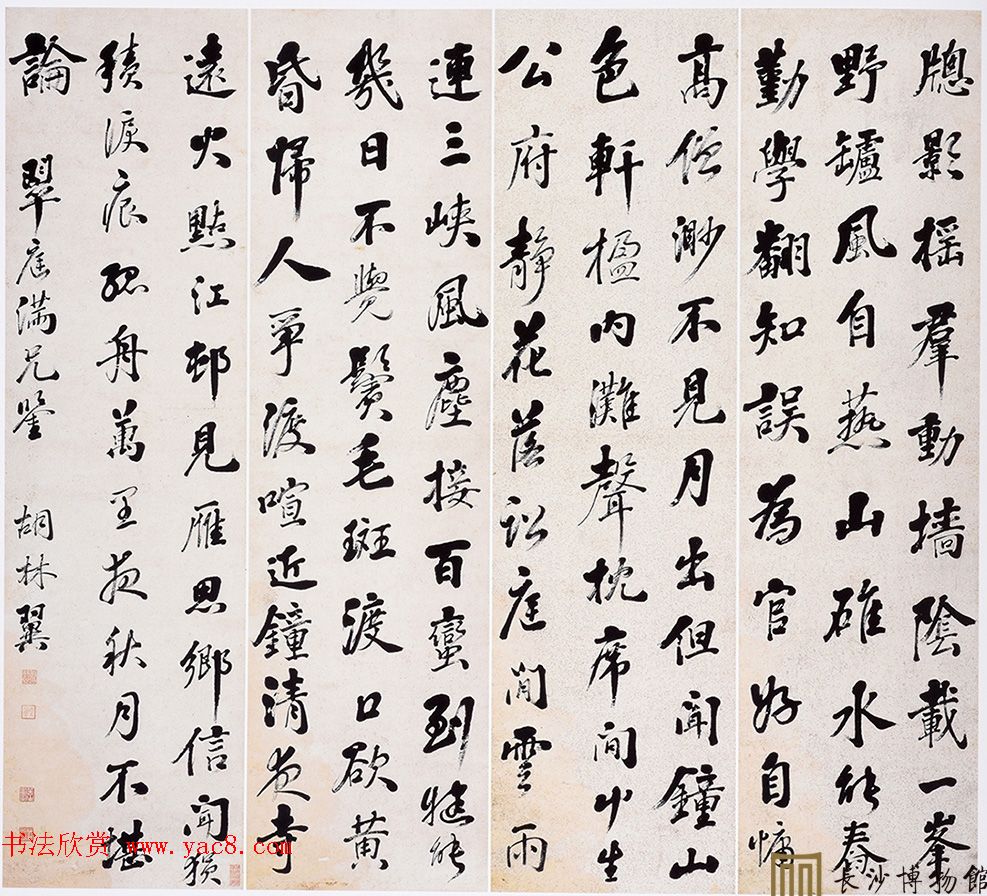 牕影搖羣動墻陰載一峯
野罏風自爇山碓水能舂
勤學翻知誤為官好自慵
高僧渺不見月出但聞鐘山
色軒楹內灘聲枕席間草生
公府靜花落訟庭閒雲雨
連三峽風塵接百蠻到難能
幾日不覺鬢毛斑渡口欲黃
昏歸人爭渡喧近鐘清夜寺
遠火點江邨見雁思鄉信聞猨
積淚痕孤舟萬里夜秋月不堪
論 翠庭滿兄鑒 胡林翼
书法欣赏 www.yac8.com
長沙博物館